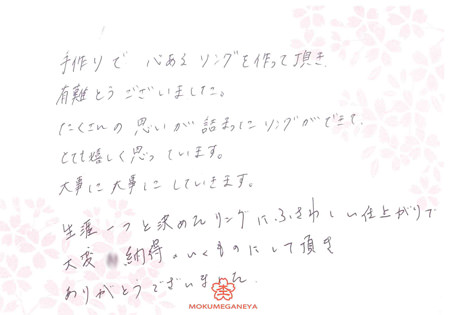 手作りで 心あるリングを作って頂き
有難とうございました。
たくさんの思いが詰まったリングができて、
とても嬉しく思っています。
大事に大事にしていきます。
生涯一つと決めたリングにふさわしい仕上がりで
大変 納得のいくものにして頂き
ありがとうございました.
MOKUMEGANEYA